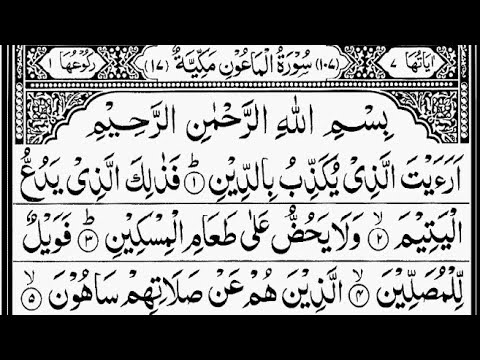 اٰيَاتُهَا ٧ (١٠٧) سُوْرَةُ الْمَاعُوْنِ مَكِّيَّةٌ (١٧) رُكُوْعُهَا ١
بِسْمِ اللّٰهِ الرَّحْمٰنِ الرَّحِيْمِ
اَرَءَيْتَ الَّذِىْ يُكَذِّبُ بِالدِّيْنِ ؕ﴿١﴾ فَذٰلِكَ الَّذِىْ يَدُعُّ
الْيَتِيْمَ ۙ﴿٢﴾ وَلَا يَحُضُّ عَلٰى طَعَامِ الْمِسْكِيْنِ ؕ﴿٣﴾ فَوَيْلٌ
لِّلْمُصَلِّيْنَ ۙ﴿٤﴾ الَّذِيْنَ هُمْ عَنْ صَلَاتِهِمْ سَاهُوْنَ ۙ﴿٥﴾